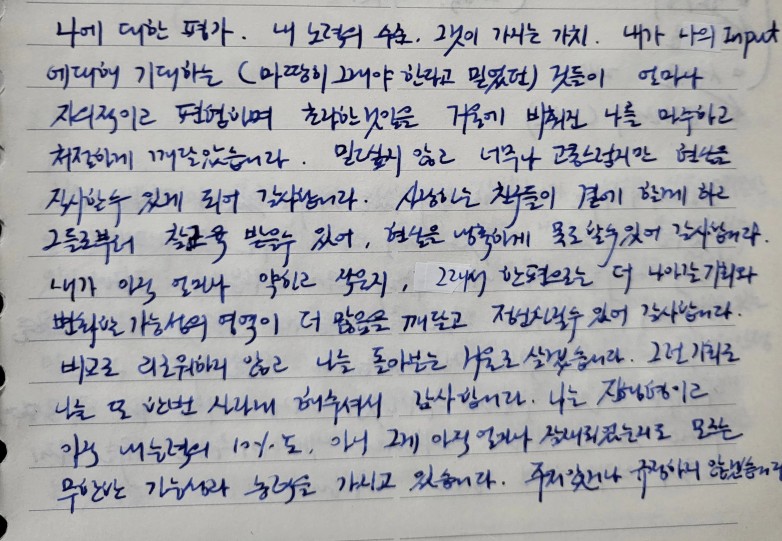 나에 대한 평가. 내 노력의 수준. 그것이 가지는 가치. 내가 나의 Input
에대해 기대하는 (마땅히 그래야 한다고 믿었던) 것들이 얼마나
자의적이고 편협하며 초라한것임을 거울에 비춰진 나를 마주하고
처절하게 깨달았습니다. 믿고싶지 않고 너무나 고통스럽지만 현실을
직시할수 있게 되어 감사합니다. 사랑하는 친구들이 곁에 함께 하고
그들로부터 참교육 받을수 있어, 현실을 냉혹하게 목도할수있어 감사합니다.
내가 아직 얼마나 약하고 작은지, 그래서 한편으로는 더 나아갈기회와
변화할 가능성의 영역이 더 많음을 깨닫고 전진할수 있어 감사합니다.
비교로 괴로워하지 않고 나를 돌아보는 거울로 삼겠습니다. 그런 기회로
나를 또 한번 자라게 해주셔서 감사합니다. 나는 진행형이고
아직 내능력의 10%도, 아니 그게 아직 얼마나 잠재되었는지도 모르는
무한한 가능성과 능력을 가지고 있습니다. 주저앉거나